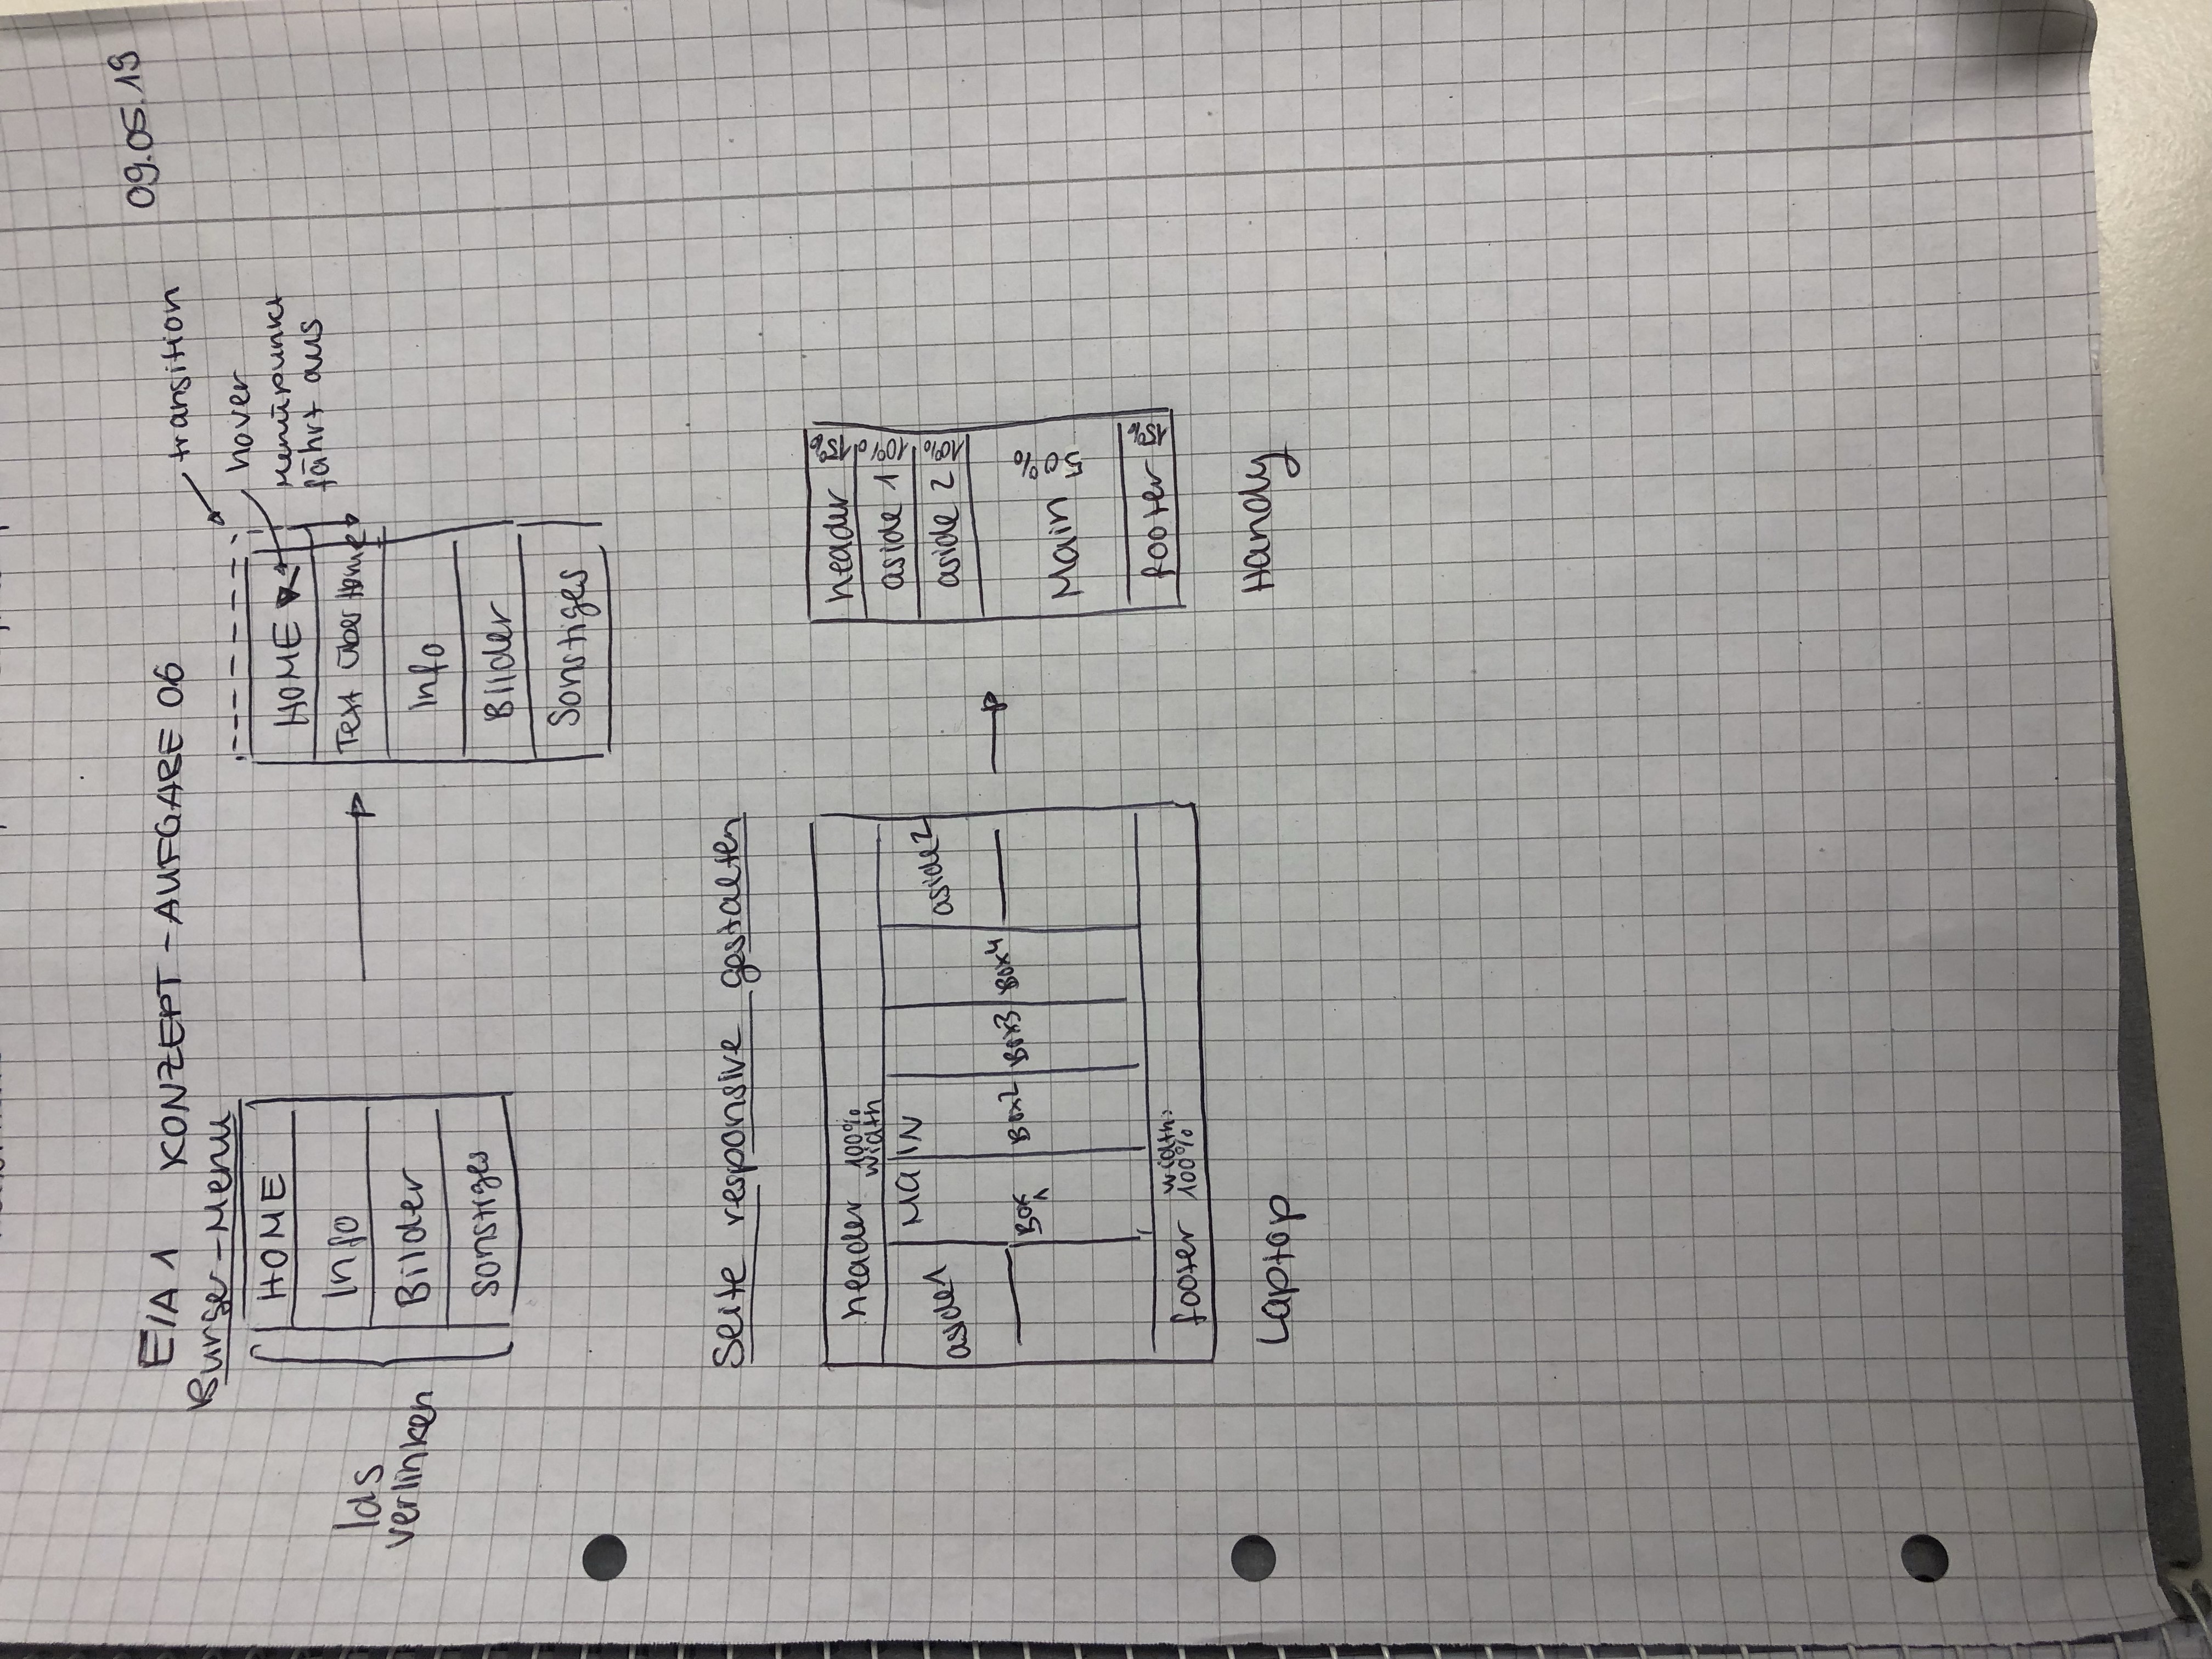 09.05.19
EIA 1 KONZEPT - AUFGABE 06
Burger-Menu
HOME
Info
Bilder
Sonstiges
Ids
verlinken
transition
hover
Menüpunkt
fährt aus
HOME
Text über Home
Info
Bilder
Sonstiges
Seite responsive gestalten
header 100%
width
aside1
MAIN
aside2
Box
1
Box2
Box3
Box4
footer width:
100%
Laptop
header 15%
aside 1 10%
aside 2 10%
Main 50%
footer 15%
Handy